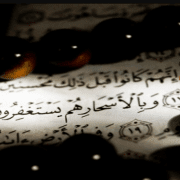 إِنَّهُمْ كَانُوا۟ قَبْلَ ذَٰلِكَ مُحْسِنِينَ
وَبِٱلْأَسْحَارِ هُمْ يَسْتَغْفِرُو
١٩ وَفِي ٱلْأَرْضِ